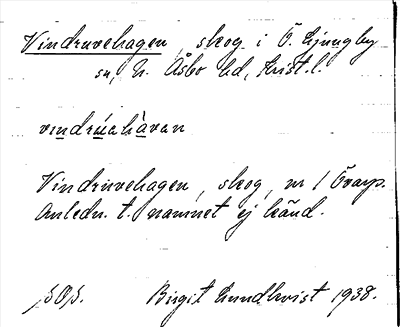 Vindruvehagen, skog i Ö. Ljungby
sn, N. Åsbo hd, Krist. l.
vindrúahàvan
Vindruvehagen, skog, nr 1 Övarp.
Anledn. t. namnet ej känd.
Birgit Lundkvist 1938.